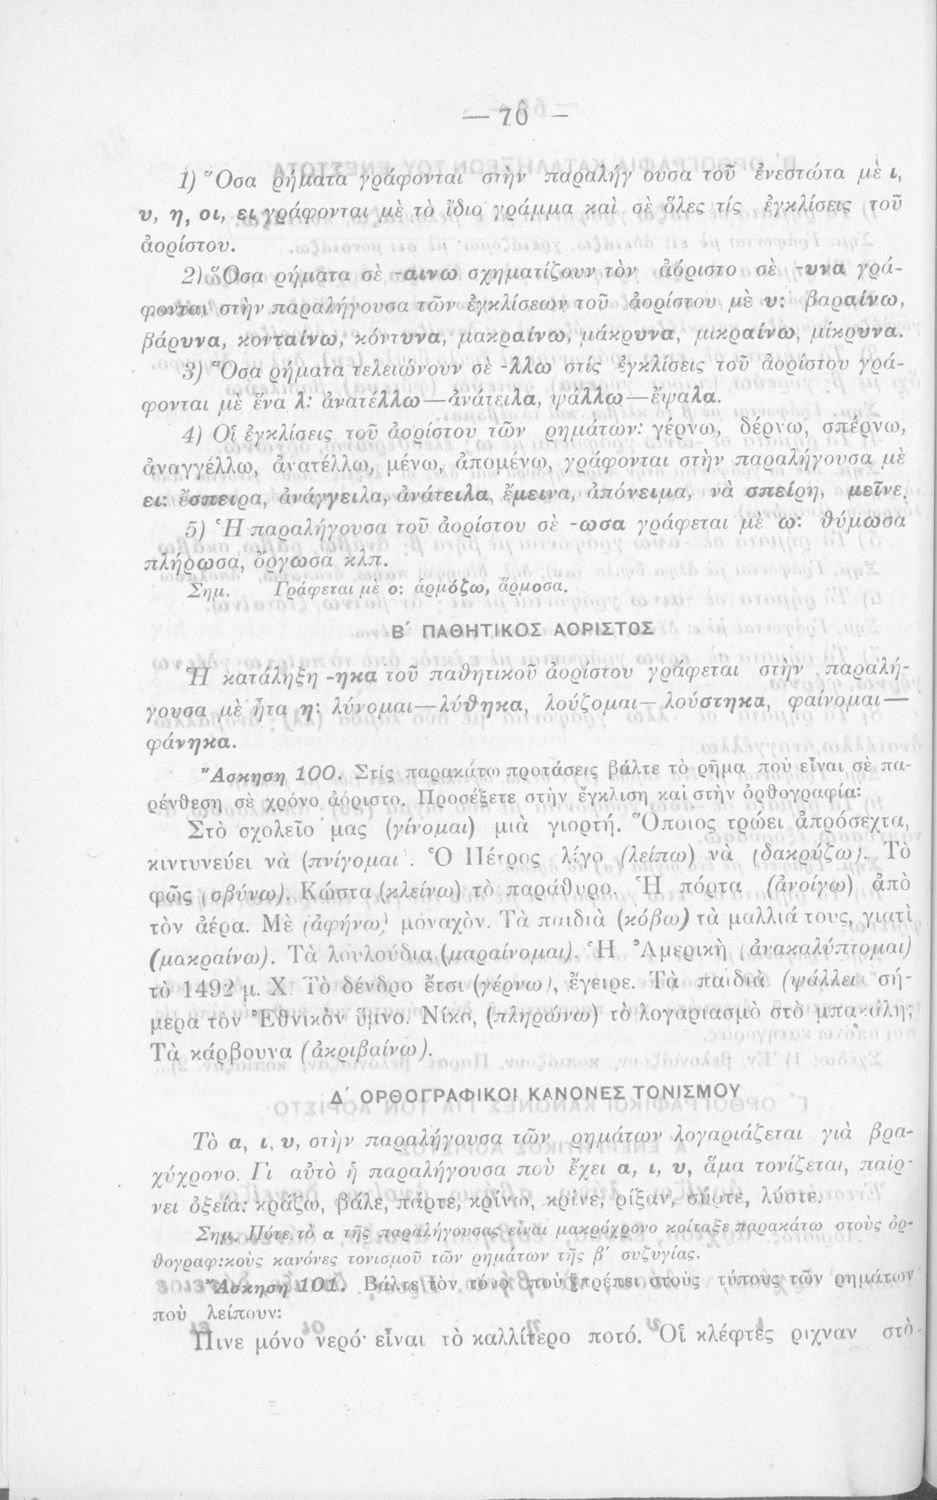 — 70 —
1) Ὅσα ρήματα γράφονται στὴν παραλήγουσα τοῦ ἐνεστώτα μὲ ι,
υ, η, οι, ει γράφονται μὲ τὸ ἴδιο γράμμα καὶ σὲ ὅλες τίς ἐγκλίσεις τοῦ
ἀορίστου.
2) Ὅσα ρήματα σὲ -αινω σχηματίζουν τὸν ἀόριστο σὲ -υνα γρά-
φονται στὴν παραλήγουσα τῶν ἐγκλίσεων τοῦ ἀορίστου μὲ υ: βαραίνω,
βάρυνα, κονταίνω, κόντυνα, μακραίνω, μάκρυνα, μικραίνω, μίκρυνα.
3) Ὅσα ρήματα τελειώνουν σὲ -λλω στίς ἐγκλίσεις τοῦ ἀορίστου γρά-
φονται μὲ ἕνα λ: ἀνατέλλω—ἀνάτειλα, ψάλλω—ἔψαλα.
4) Οἱ ἐγκλίσεις τοῦ ἀορίστου τῶν ρημάτων: γέρνω, δέρνω, σπέρνω,
ἀναγγέλλω, ἀνατέλλω, μένω, ἀπομένω, γράφονται στὴν παραλήγουσα μὲ
ει: ἔσπειρα, ἀνάγγειλα, ἀνάτειλα, ἔμεινα, ἀπόνειμα, νὰ σπείρη, μεῖνε.
5) Ἡ παραλήγουσα τοῦ ἀορίστου σὲ -ωσα γράφεται μὲ ω: θύμωσα
πλήρωσα, ὄργωσα κλπ.
Σημ. Γράφεται μὲ ο: ἁρμόζω, ἅρμοσα.
Β΄ ΠΑΘΗΤΙΚΟΣ ΑΟΡΙΣΤΟΣ
Ἡ κατάληξη -ηκα τοῦ παθητικοῦ ἀορίστου γράφεται στὴν παραλή-
γουσα μὲ ἦτα η: λύνομαι—λύθηκα, λούζομαι—λούστηκα, φαίνομαι—
φάνηκα.
Ἄσκηση 100. Στίς παρακάτω προτάσεις βάλτε τὸ ρῆμα ποὺ εἶναι σὲ πα-
ρένθεση σὲ χρόνο ἀόριστο. Προσέξετε στὴν ἔγκλιση καὶ στὴν ὀρθογραφία:
Στὸ σχολεῖο μας (γίνομαι) μιὰ γιορτή. Ὅποιος τρώει ἀπρόσεχτα,
κιντυνεύει νὰ (πνίγομαι). Ὁ Πέτρος λίγο (λείπω) νὰ (δακρύζω). Τὸ
φῶς (σβύνω). Κώστα (κλείνω) τὸ παράθυρο. Ἡ πόρτα (ἀνοίγω) ἀπὸ
τὸν ἀέρα. Μὲ (ἀφήνω) μοναχὸν. Τὰ παιδιὰ (κόβω) τὰ μαλλιά τους, γιατὶ
(μακραίνω). Τὰ λουλούδια (μαραίνομαι). Ἡ Ἀμερικὴ (ἀνακαλύπτομαι)
τὸ 1492 μ. Χ. Τὸ δένδρο ἔτσι (γέρνω), ἔγειρε. Τὰ παιδιὰ (ψάλλει σή-
μερα τὸν Ἐθνικὸν ὕμνο. Νίκο, (πληρώνω) τὸ λογαριασμὸ στὸ μπακάλη;
Τὰ κάρβουνα (ἀκριβαίνω).
Δ΄ ΟΡΘΟΓΡΑΦΙΚΟΙ ΚΑΝΟΝΕΣ ΤΟΝΙΣΜΟΥ
Τὸ α, ι, υ, στὴν παραλήγουσα τῶν ρημάτων λογαριάζεται γιὰ βρα-
χύχρονο. Γι αὐτὸ ἡ παραλήγουσα ποὺ ἔχει α, ι, υ, ἅμα τονίζεται, παίρ-
νει ὀξεία: κράζω, βάλε, πάρτε, κρίνω, κρίνε, ρίξαν, σύρτε, λύστε.
Σημ. Πότε τὸ α τῆς παραλήγουσας εἶναι μακρόχρονο κοίταξε παρακάτω στοὺς ὀρ-
θογραφικοὺς κανόνες τονισμοῦ τῶν ρημάτων τῆς β΄ συζυγίας.
Ἄσκηση 101. Βάλτε τὸν τόνο ποὺ πρέπει στοὺς τύπους τῶν ρημάτων
ποὺ λείπουν:
Πινε μόνο νερό· εἶναι τὸ καλλίτερο ποτό. Οἱ κλέφτες ριχναν στὸ